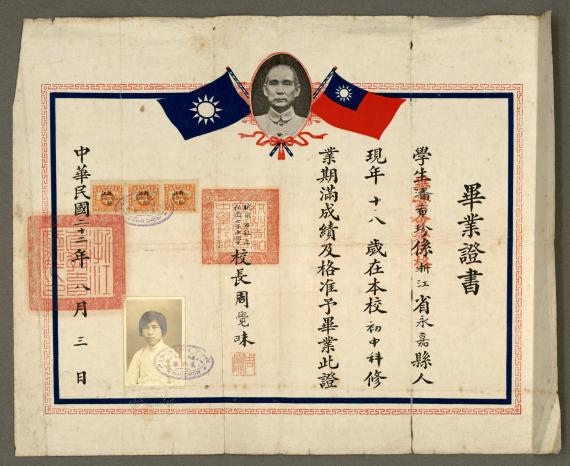 畢業證書
學生黃希珍係浙江省永嘉縣人
現年十八歲在本校初中科修
業期滿成績及格准予畢業此證
校長周覺昧
中華民國二十二年八月三日